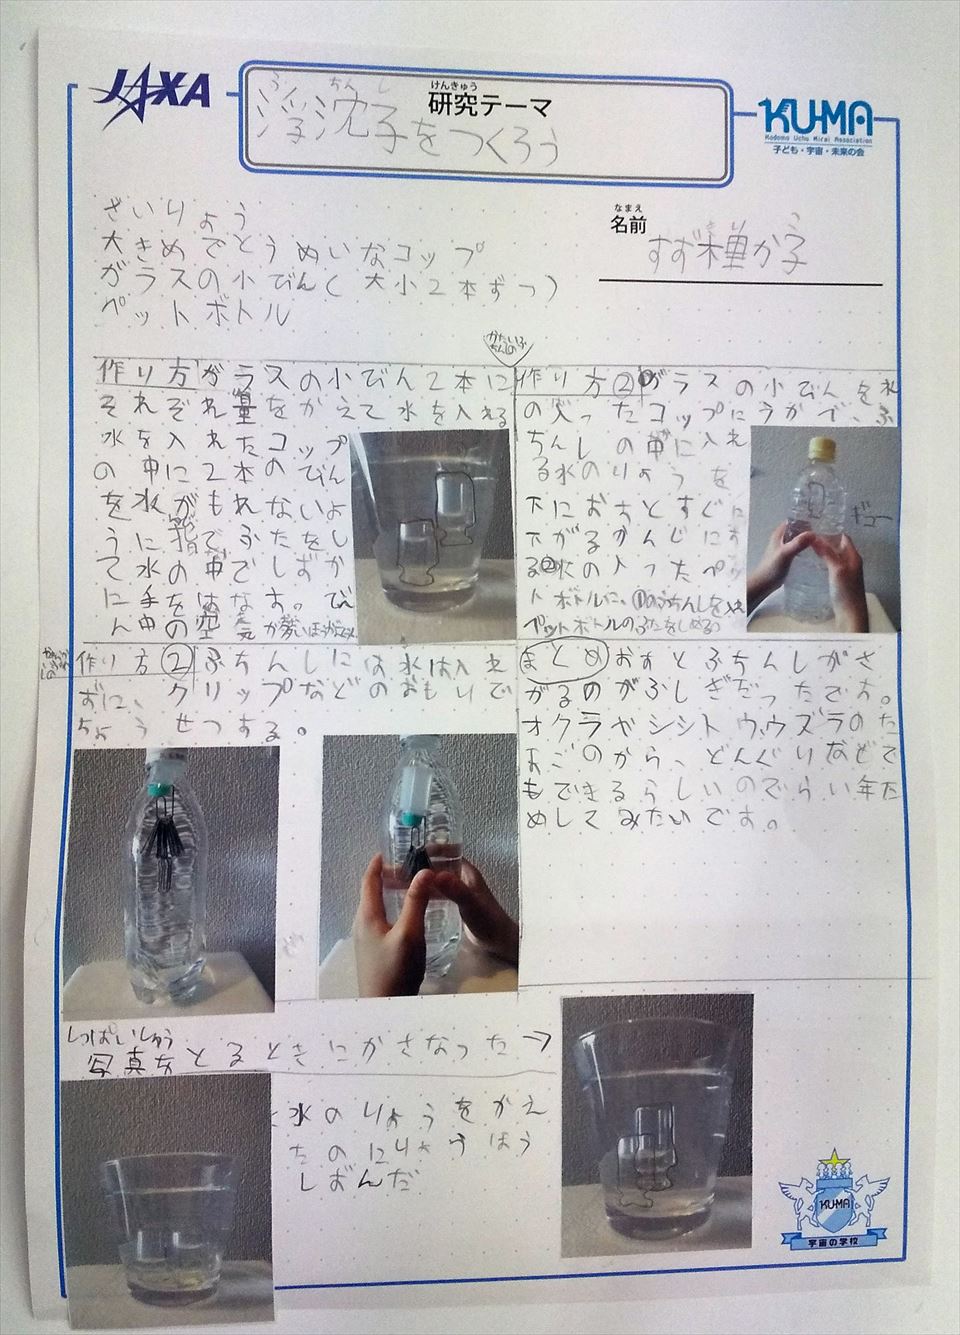 JAXA
けんきゅう
研究テーマ
ふ ちん し
浮沈子をつくろう
KU-MA
Kodomo Uchu Mirai Association
子ども・宇宙・未来の会
なまえ
名前
すず種か子
ざいりょう
大きめでとうめいなコップ
ガラスの小びん(大小2本ずつ)
ペットボトル
作り方 ガラスの小びん2本に
それぞれ量をかえて水を入れる
水を入れたコップ
の中に2本のびん
を水がもれないよ
うに指でふたをし
て水の中でしずか
に手をはなす。び
ん中の空気が
作り方② ①ガラスの小びんを水
の入ったコップにうかべ、ふ
ちんしの中に入れ
る水のりょうを
下におちとすぐに
下がるかんじにす
る②水の入ったペッ
トボトルに、①のふちんしを入れ
ペットボトルのふたをしめる
ギュー
作り方② ふちんしには水は入れ
ずに、クリップなどのおもりで
ちょうせつする。
まとめ おすとふちんしがさ
がるのがふしぎだったです。
オクラやシシトウ、ウズラのた
まごのから、どんぐりなどで
もできるらしいのでらい年ため
してみたいです。
しっぱいしゅう
写真をとるときにかさなった→
水のりょうをかえ
たのにりょうほう
しずんだ
KU-MA
宇宙の学校